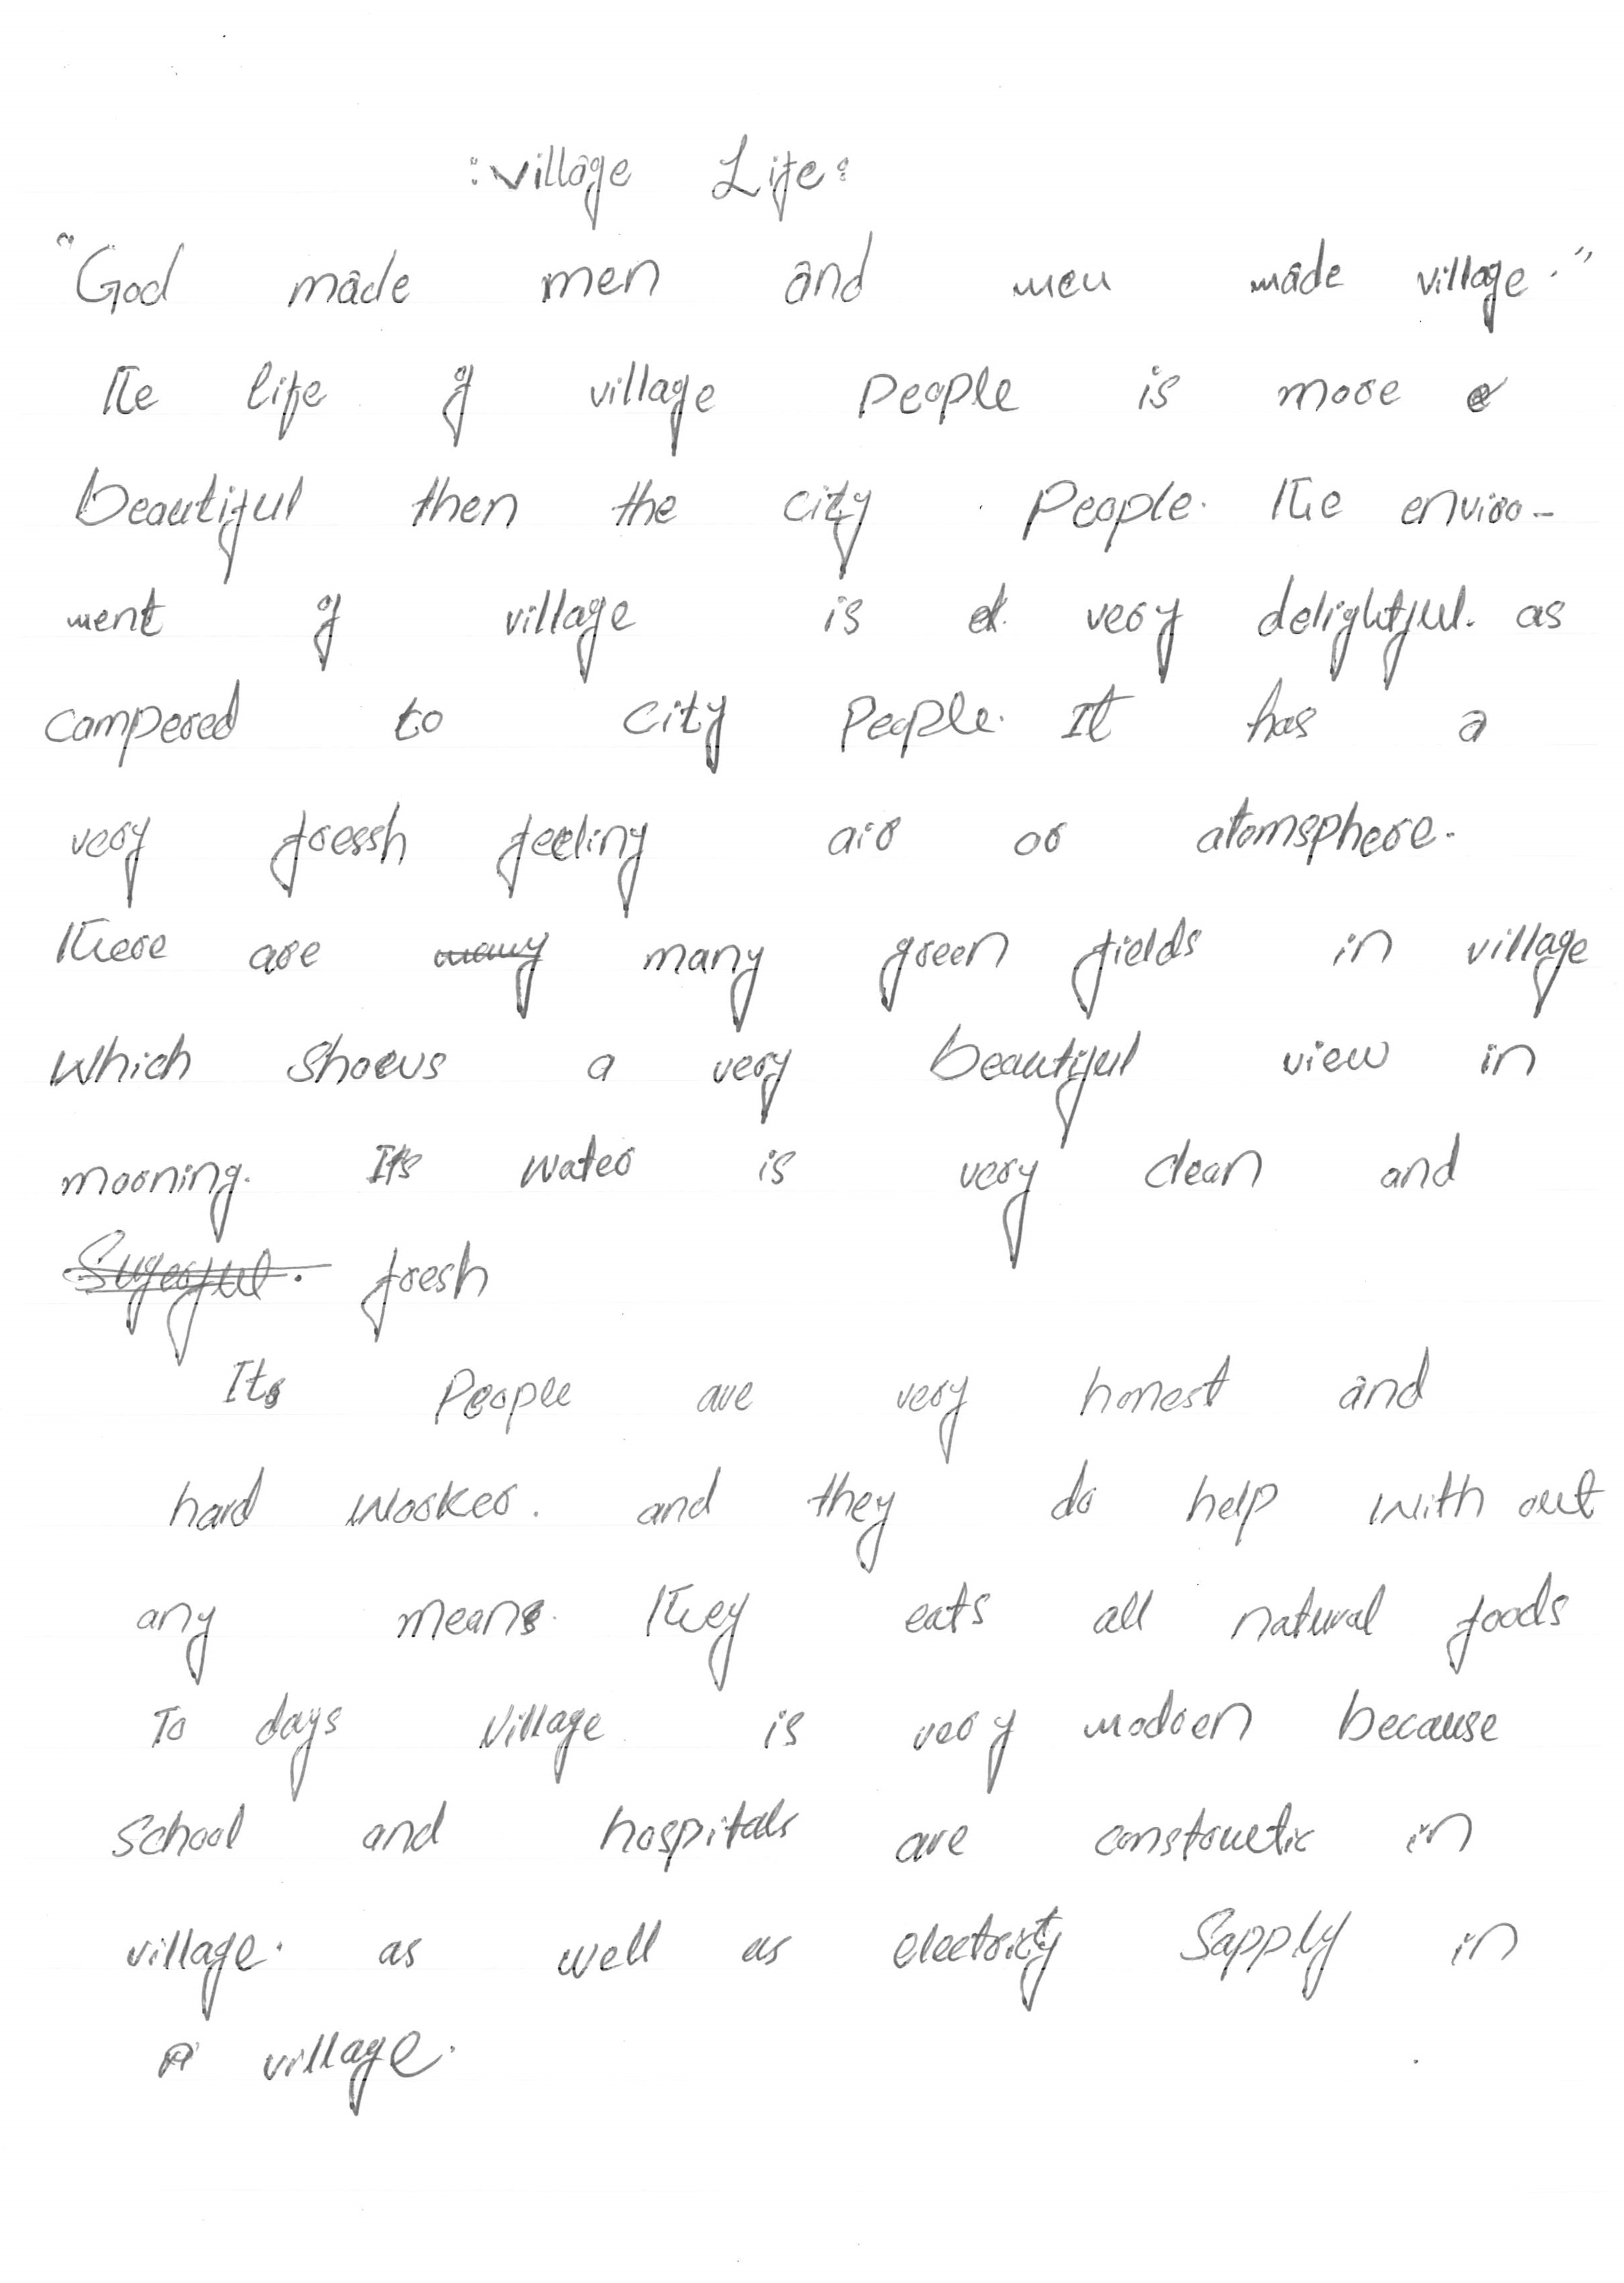 :Village Life:
"God made men and men made village."
The life of village people is more
beautiful then the city People. The enviro-
ment of village is very delightful. as
compered to city people. It has a
very fressh feeling air or atomsphere.
There are many many green fields in village
Which shows a very beautiful view in
morning. Its water is very clean and
Sugerful. fresh
Its People are very honest and
hard worker. and they do help with out
any means. They eats all natural foods
To days Village is very modren because
School and hospitals are constructic in
village. as well as electricty Sapply in
village.